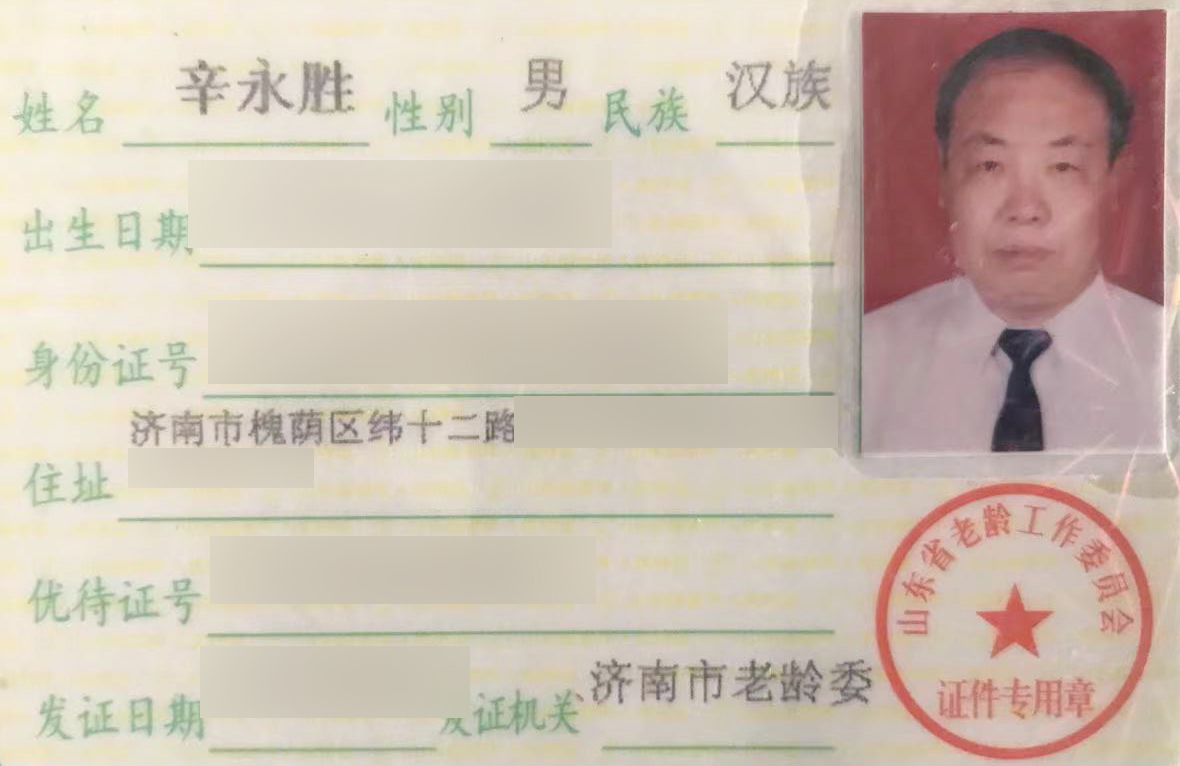 姓名 辛永胜 性别 男 民族 汉族
出生日期
身份证号
济南市槐荫区纬十二路
住址
优待证号
发证日期 发证机关 济南市老龄委
山东省老龄工作委员会
证件专用章